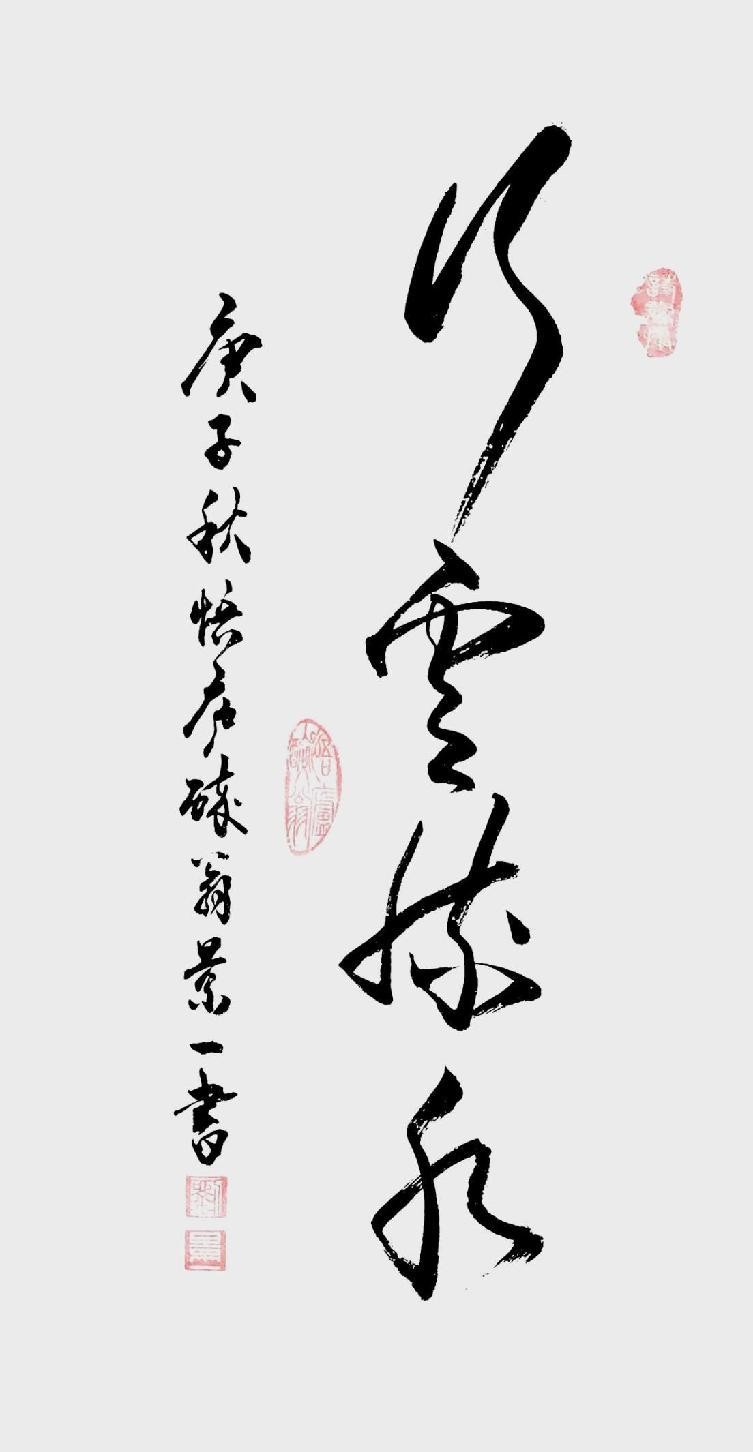 行雲流水
庚子秋悟庐硃翁景一書